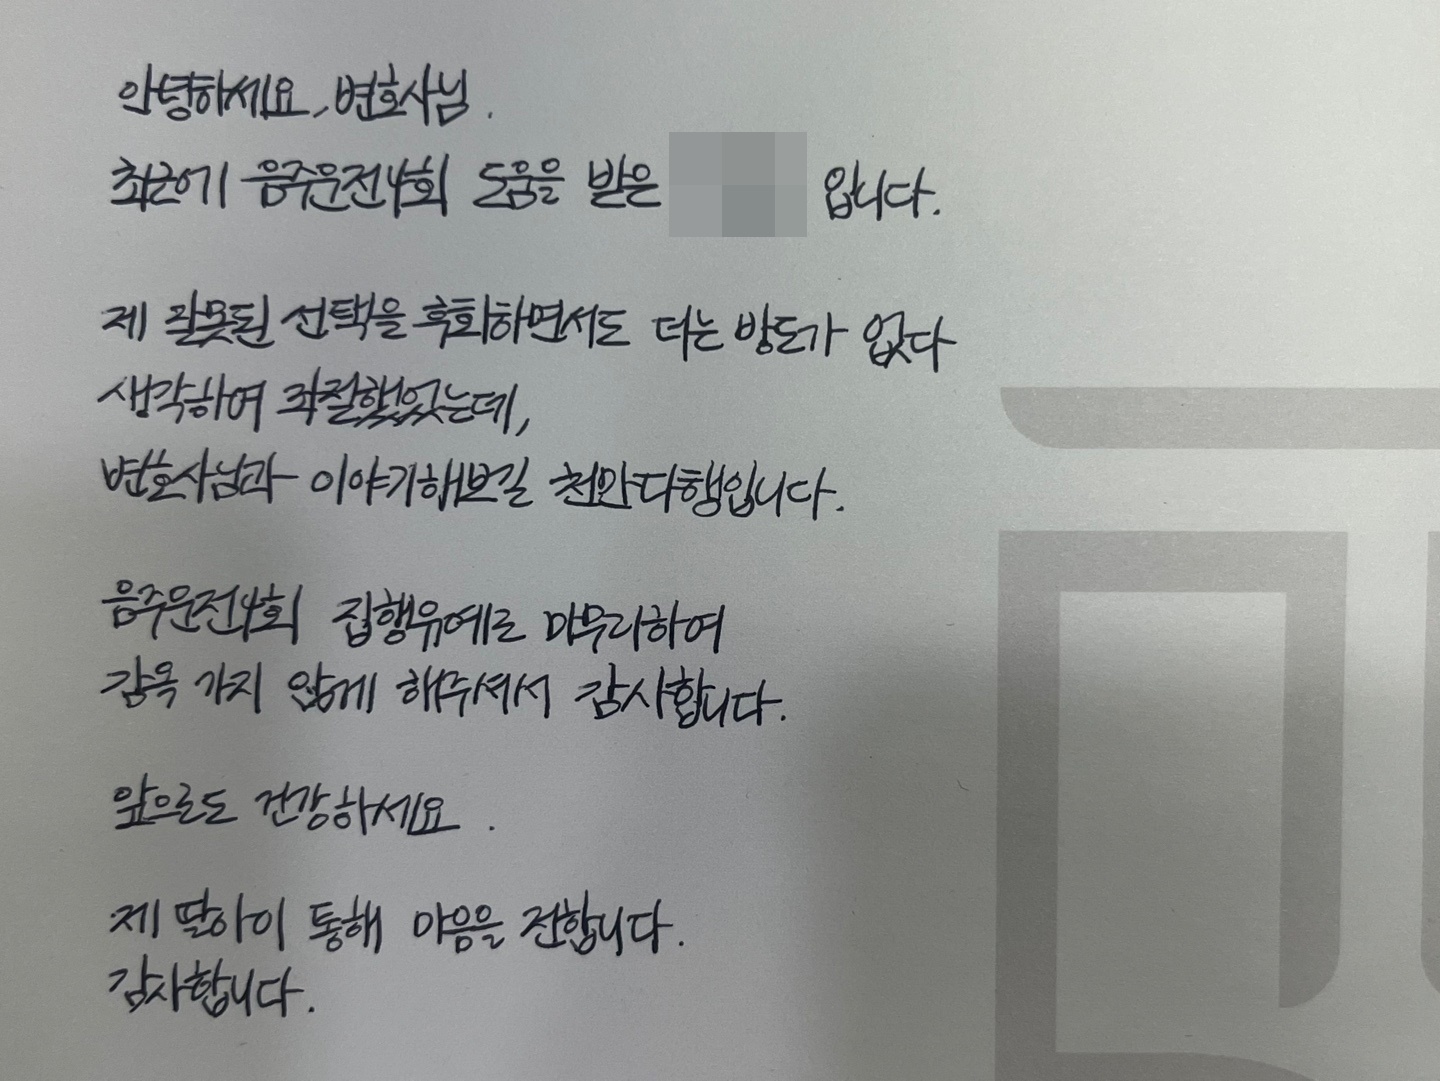 안녕하세요, 변호사님.
최근에 음주운전4회 도움을 받은 입니다.
제 잘못된 선택을 후회하면서도 더는 방도가 없다
생각하여 좌절했었는데,
변호사님과 이야기해보길 천만다행입니다.
음주운전4회 집행유예로 마무리하여
감옥 가지 않게 해주셔서 감사합니다.
앞으로도 건강하세요.
제 딸아이 통해 마음을 전합니다.
감사합니다.